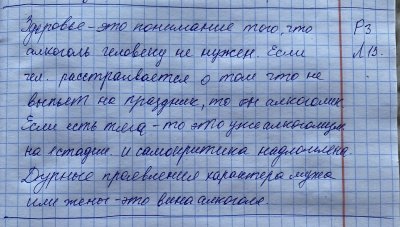 Здоровье - это понимание того, что РЗ
алкоголь человеку не нужен. Если Л 13.
чел. расстраивается о том что не
выпьет на праздник, то он алкоголик.
Если есть тяга - то это уже алкоголизм
на 1 стадии и самокритика надломлена.
Дурные проявления характера мужа
или жены - это вина алкоголя.